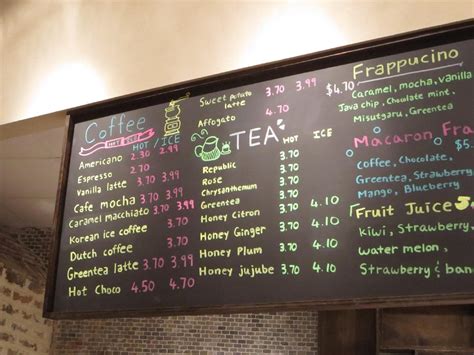 Coffee
HOT / ICE
Americano 2.30 2.99
Espresso 2.70
Vanilla latte 3.70 3.99
Cafe mocha 3.70 3.99
Caramel macchiato 3.70 3.99
Korean ice coffee 3.99
Dutch coffee 3.99
Greentea latte 3.70 3.99
Hot Choco 4.50 4.70
Sweet potato latte 3.70 3.99
Affogato 4.70
TEA
HOT ICE
Republic 3.70
Rose 3.70
Chrysanthemum 3.70
Greentea 3.70
Honey Citron 3.70 4.10
Honey Ginger 3.70 4.10
Honey Plum 3.70 4.10
Honey jujube 3.70 4.10
Frappucino
$4.70 Caramel, mocha, vanilla
Java chip, Choolate mint,
Misutgaru, Greentea
Macaron Fra
Coffee, Chocolate, $5.
Greentea, Strawberry
Mango, Blueberry
Fruit Juice
kiwi, Strawberry,
water melon,
Strawberry & ban